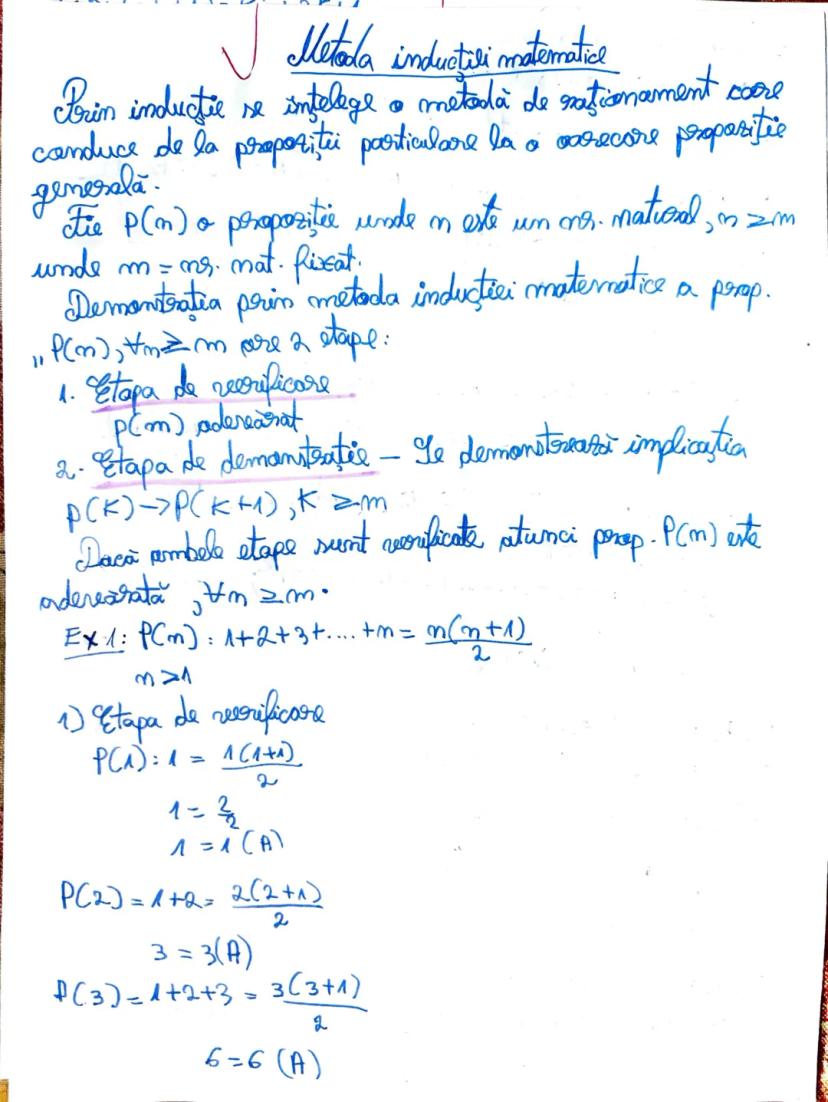 Metoda inducției matematice
Prin inducție se înțelege o metodă de raționament care
conduce de la propoziții particulare la o oarecare propoziție
generală.
Fie P(n) o propoziție unde n este un nr. natural, n ≥ m
unde m = nr. nat. fixat.
Demonstrația prin metoda inducției matematice a prop.
„P(n), ∀n ≥ m are 2 etape:
1. Etapa de verificare
P(m) adevărat
2. Etapa de demonstrație – Se demonstrează implicația
P(K) → P(K+1), K ≥ m
Dacă ambele etape sunt verificate atunci prop. P(n) este
adevărată, ∀n ≥ m.
Ex 1: P(n): 1+2+3+....+n = n(n+1)/2
n ≥ 1
1) Etapa de verificare
P(1): 1 = 1(1+1)/2
1 = 2/2
1 = 1 (A)
P(2) = 1+2 = 2(2+1)/2
3 = 3(A)
P(3) = 1+2+3 = 3(3+1)/2
6 = 6 (A)